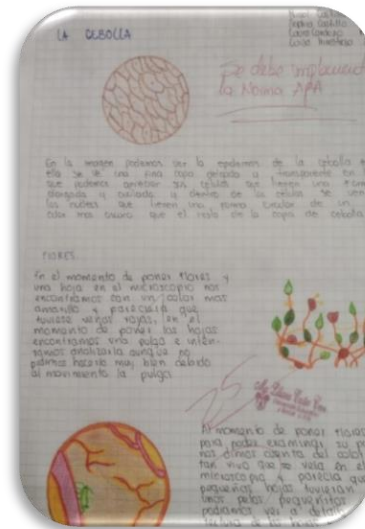 LA CEBOLLA
Se debe implementar
la Norma APA
En la imagen podemos ver la epidermis de la cebolla
ella se ve una fina capa delgada y transparente en
que podemos apreciar sus células que tienen una
alargada y ovalada y dentro de las células se ven
los nucleos que tienen una forma circular de un
color mas oscuro que el resto de la capa de cebolla
FLORES
En el momento de poner flores y
una hoja en el microscopio nos
encontramos con un color mas
amarillo y pareceria que
tuviese venas rojas, en el
momento de poner las hojas
encontramos una pulga e inten-
tamos analizarla aunque no
pudimos hacerlo muy bien debido
al movimiento la pulga
Al momento de poner flores
para poder examinar su
nos dimos cuenta del color
tan vivo que se veia en el
microscopio y parecia que
pequeñas hojas tuvieran
unos pelos pequeñitos
podiamos ver a detalle